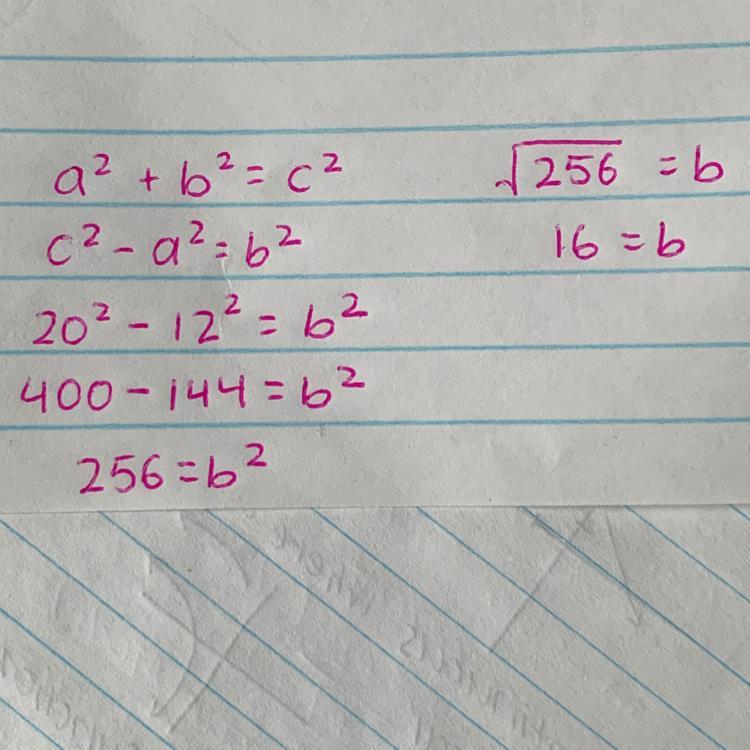 a² + b² = c²
c² - a² = b²
20² - 12² = b²
400 - 144 = b²
256 = b²
√256 = b
16 = b